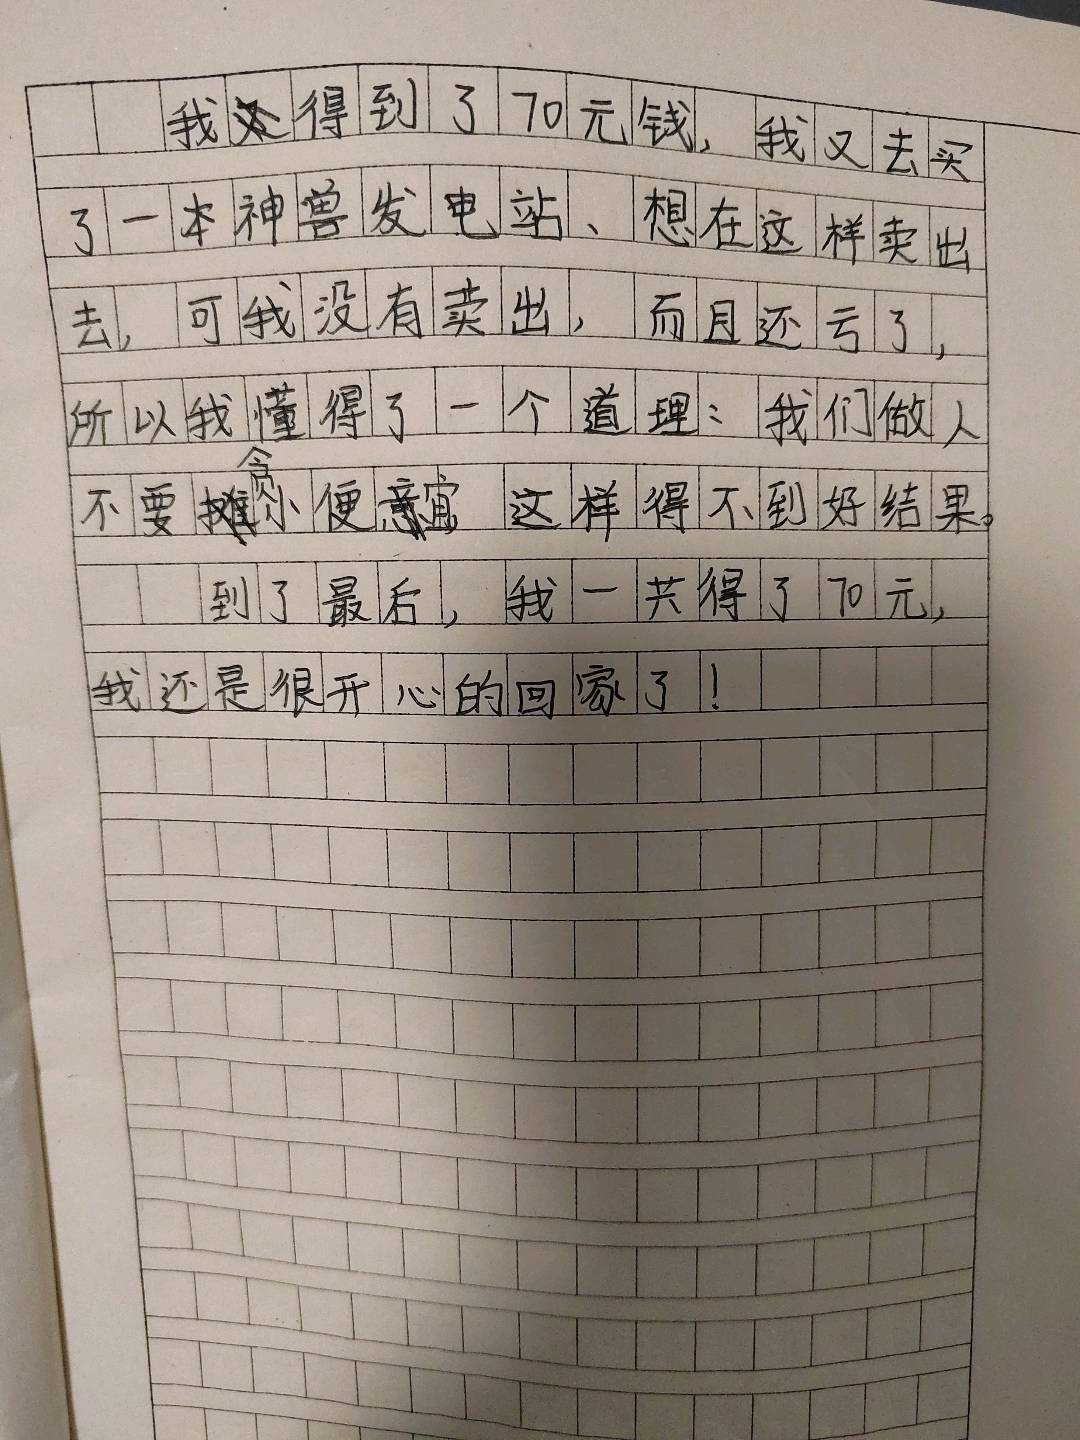 我得到了70元钱，我又去买
了一本神兽发电站、想在这样卖出
去，可我没有卖出，而且还亏了，
所以我懂得了一个道理：我们做人
不要贪小便宜 这样得不到好结果。
到了最后，我一共得了70元，
我还是很开心的回家了！